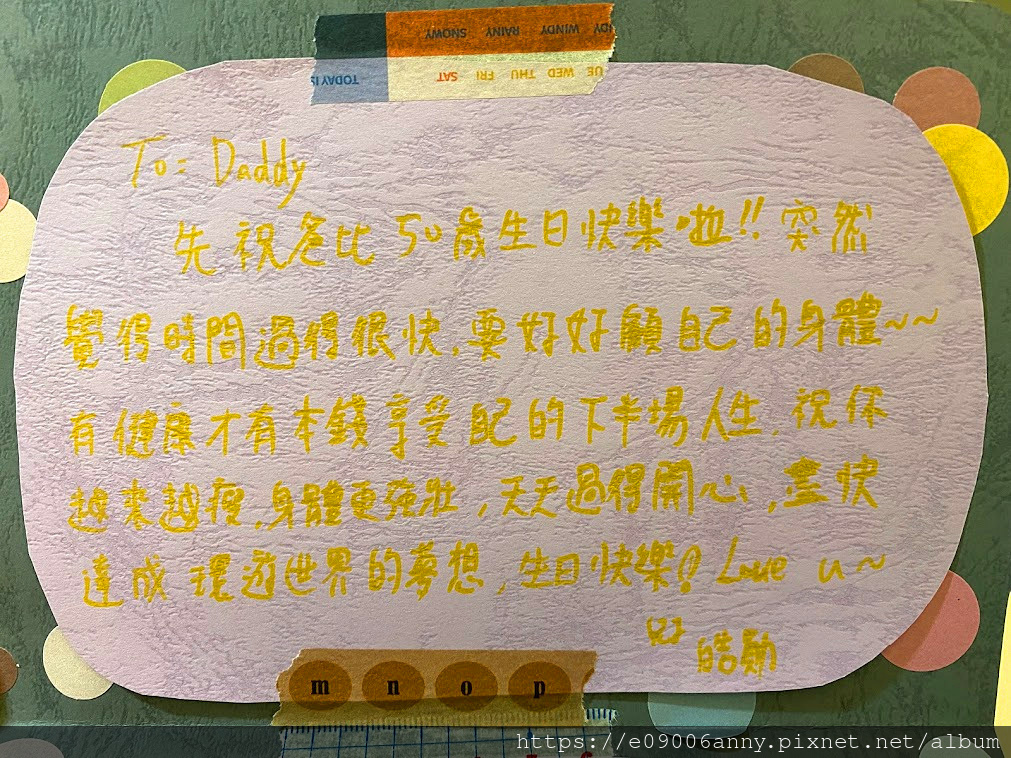 NDY WINDY RAINY SNOWY
UE WED THU FRI SAT TODAY IS
To: Daddy
先祝爸比50歲生日快樂啦!! 突然
覺得時間過得很快,要好好顧自己的身體~~
有健康才有本錢享受 的下半場人生.祝你
越來越瘦,身體更強壯,天天過得開心,盡快
達成環遊世界的夢想,生日快樂! Love u~
皓勛
m n o p
https://e09006anny.pixnet.net/album